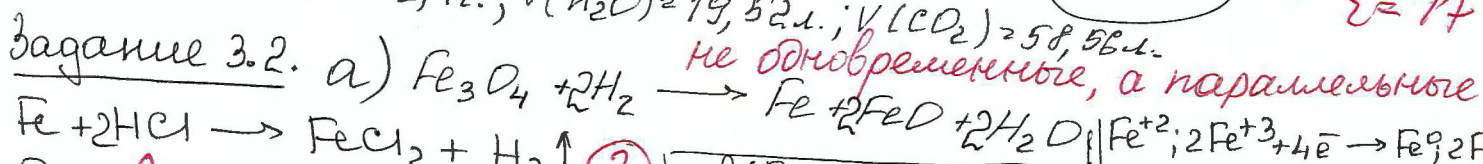 V(H₂O) = 19,52л.; V(CO₂) = 58,56л.
Задание 3.2. а) Fe₃O₄ + 2H₂ → Fe + 2FeO + 2H₂O || Fe⁺²; 2Fe⁺³ + 4ē → Fe⁰; 2F
не одновременные, а параллельные
Fe + 2HCl → FeCl₂ + H₂↑